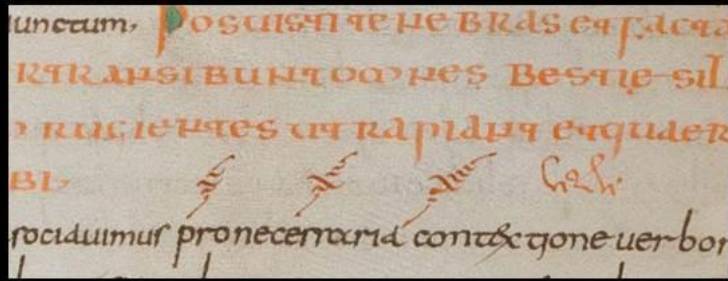 iunctum, POSUISTI TENEBRAS ET FACTA
RTRANSIBUNT OMNES BESTIĘ SIL
RUGIENTES UT RAPIANT ET QUAER
BI,
sociauimus pro necessaria contextione uerbor